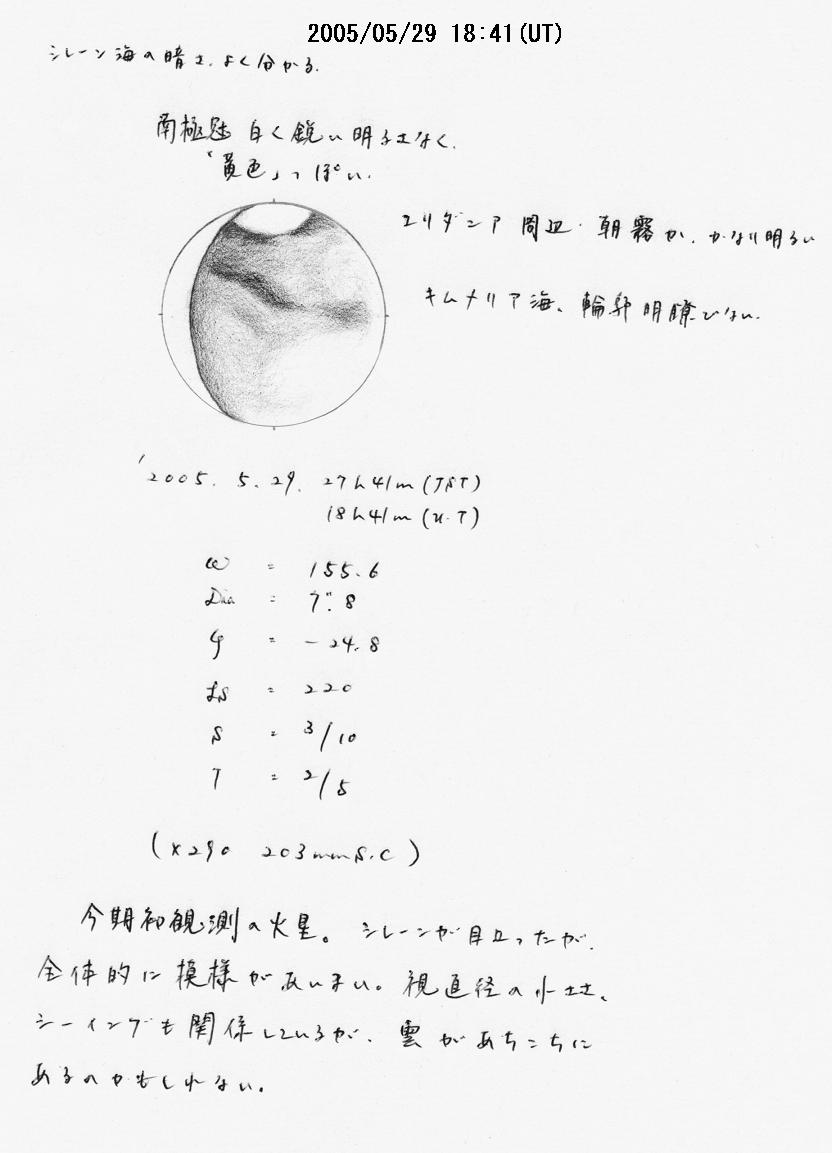 2005/05/29 18:41(UT)
シレーン海の暗さ、よく分かる.
南極冠 白く鋭い明るさなく.
「黄色」っぽい.
エリダニア周辺・朝霧か、かなり明るい
キムメリア海、輪郭明瞭でない.
'2005. 5. 29. 27h41m (JST)
18h41m (U.T)
ω = 155.6
Dia = 7".8
φ = -24.8
Ls = 220
S = 3/10
T = 2/5
(×290 203mm S.C)
今期初観測の火星。シレーンが目立ったが、
全体的に模様があいまい。視直径の小ささ、
シーイングも関係しているが、雲があちこちに
あるのかもしれない.